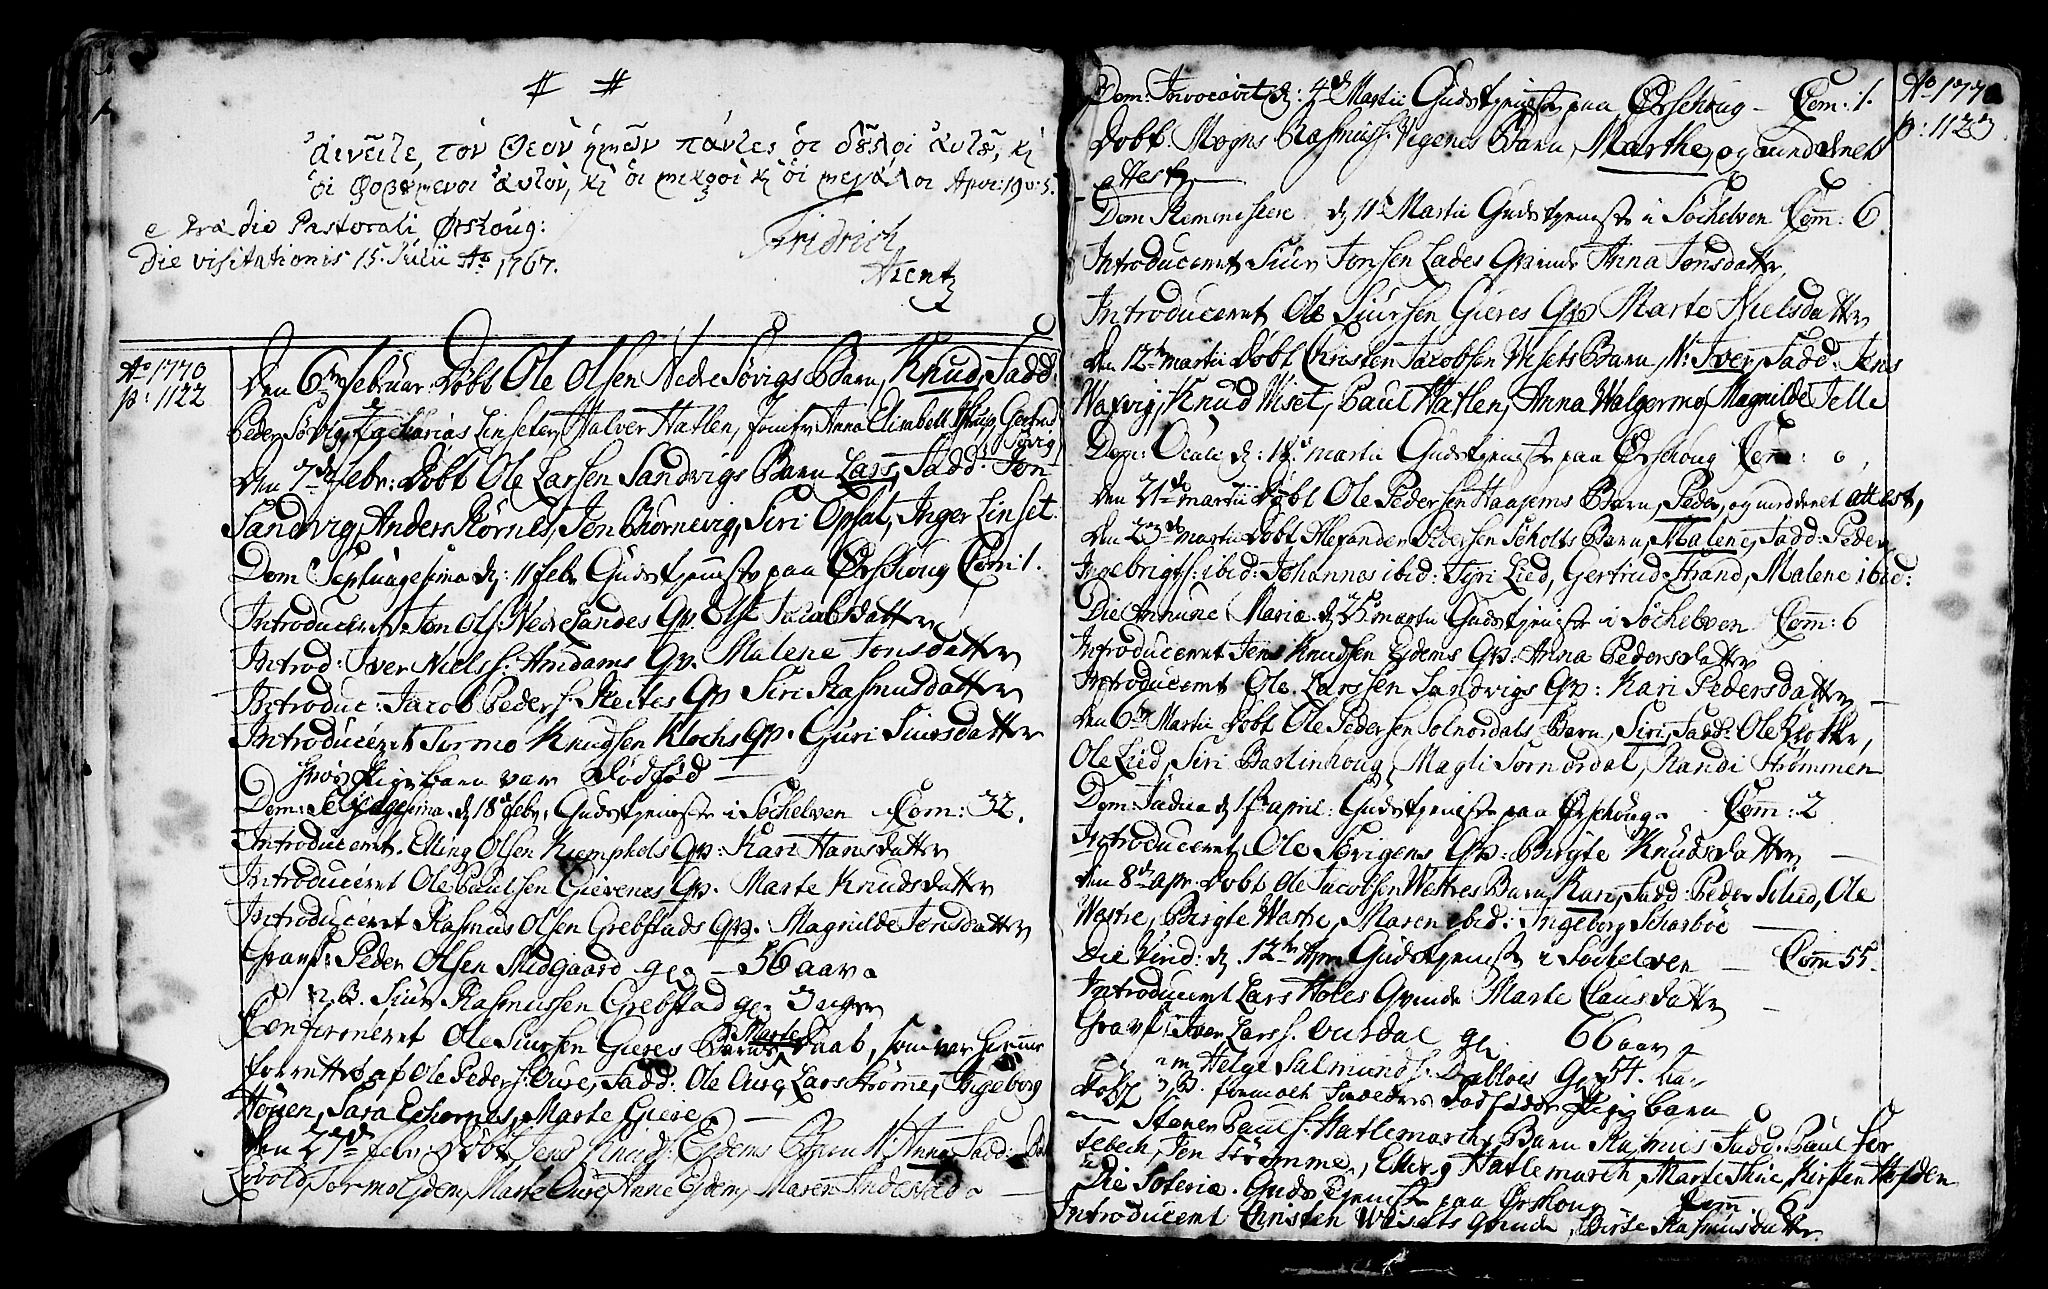 αἰνεῖτε, τὸν Θεὸν ἡμῶν πάντες οἱ δοῦλοι αὐτοῦ, κὶ
οἱ φοβούμενοι αὐτὸν, κὶ οἱ μικροὶ κὶ οἱ μεγάλοι Apoc: 19 v: 5.
e Prædio Pastorali Ørskoug:
Die visitationis 15. Julii Ao 1767.
Fridrich
Arentz
Ao 1770
p: 1122
Den 6te Februar: Døbt Ole Olsen Nedre Søvigs Barn, Knud, Fadd:
Peder Søvig, Zacharias Linseter, Halver Hatlen, Jomfr Anna Elisabeth
Søvig
Den 7de Febr: Døbt Ole Larsen Sandvigs Barn Lars, Fadd: Jon
Sandvig, Anders Kørnes, Jen Biørnevig, Siri Opsal, Inger Linset.
Dom Septuagesima d: 11 Febr Gudstjeneste paa Ørschoug Com 1.
Introduceret Jon Ols: Nedre Landes Qv. Else Jacobsdatter
Introd: Iver Niels s: Amdams Qv. Malene Jonsdatter
Introduc: Jacob Peders: Reites Qv Siri Rasmusdatter
Introduceret Tormo Knudsen Klochs Qv. Guri Siursdatter
hvis Pigebarn var Dødfød
Dom: Sexagesima d 18de Febr. Gudstjeneste i Søchelven Com: 32.
Introduceret. Elling Olsen Kiemphols Qv: Kari Hansdatter
Introduceret Ole Paulsen Gievenes Qv. Marte Knudsdatter
Introduceret Rasmus Olsen Grebstads Qv. Magnilde Jonsdatter
Gravf: Peder Olsen Midgaard gl: 56 aar
n. B. Siur Rasmussen Grebstad gl 3 uger
Confirmeret Ole Siursen Gieres Barns Marte Daab, som var hiemme
forrettet af Ole Peders: Oure, Fadd: Ole Oure, Lars Strømme, Ingeborg
Houen, Sara Echornes, Marte Giere
Den 27de Febr Døbt Jens Knuds: Egdems Barn N: Anne Fadd:
Løvold, Tormo Egdem, Marte Oure, Anne Egdem, Maren
Dom: Invocavit d: 4de Martii Gudstjeneste paa Ørschoug - Com: 1.
Ao 1770
p: 1123
Døbt Mogns Rasmuss: Vegenes Barn, Marthe, og meddeelt
attest
Dom Reminiscere d 11te Martii Gudstjeneste i Søchelven Com: 6
Introduceret Siur Jonsen Lades Qvinde Anna Jonsdatter
Introduceret Ole Siursen Gieres Qv Marte Nielsdatter
Den 12te martii Døbt Christen Jacobsen Visets Barn, N: Iver, Fadd: Jens
Waxvig, Knud Viset, Paul Hatlen, Anna Walgermo, Magnilde Telle
Dom: Oculi d: 18de martii Gudstjeneste paa Ørschoug Com: 0,
Den 21de martii Døbt Ole Pedersen Haasems Barn, Peder, og meddeelt attest,
Den 23de martii Døbt Alexander Pedersen Scholts Barn, Malene, Fadd: Peder
Ingebrigts: ibid: Johannes ibid: Syri Lied, Gertrud Strand, Malene ibid:
Die Annunc Mariæ. d 25 martii Gudstjeneste i Søchelven Com: 6
Introduceret Jens Knudsen Egdems Qv: Anna Pedersdatter
Introduceret Ole Larssen Sandvigs Qv: Kari Pedersdatter
Den 6te Martii Døbt Ole Pedersen Solnørdals Barn, Siri, Fadd: Ole
Ole Lied, Siri Barlinhoug, Magli Sørnørdal, Randi Strømmen
Dom: Judica d 1ste april: Gudstjeneste paa Ørschoug. Com: 2
Introduceret Ole Søvigens Qv: Birgte Knudsdatter
Den 8de apr. Døbt Ole Jacobsen Westres Barn, Karn, Fadd: Peder Lied, Ole
Westre, Birgte Westre, Maren ibid: Ingeborg Scharbøe
Die Virid: d 12te Apr Gudstjeneste i Søchelven Com 55.
Introduceret Lars Holes Qvinde Marte Clausdatter
Gravf: Iver Larss: Oursdal gl: 66 aar
2 m Helge Salmunds: gl 54.
Døbt
Stener Pauls: Hatlemarchs Barn Rasmus Fadd: Paul
Tebech, Jen Strømme, Elling Hatlemarch, Marte, Kirsten
Die Soteriæ. Gudstjeneste paa Ørskoug Com 6
Introduceret Christen Wisets Qvinde, Birte Rasmusdatter.